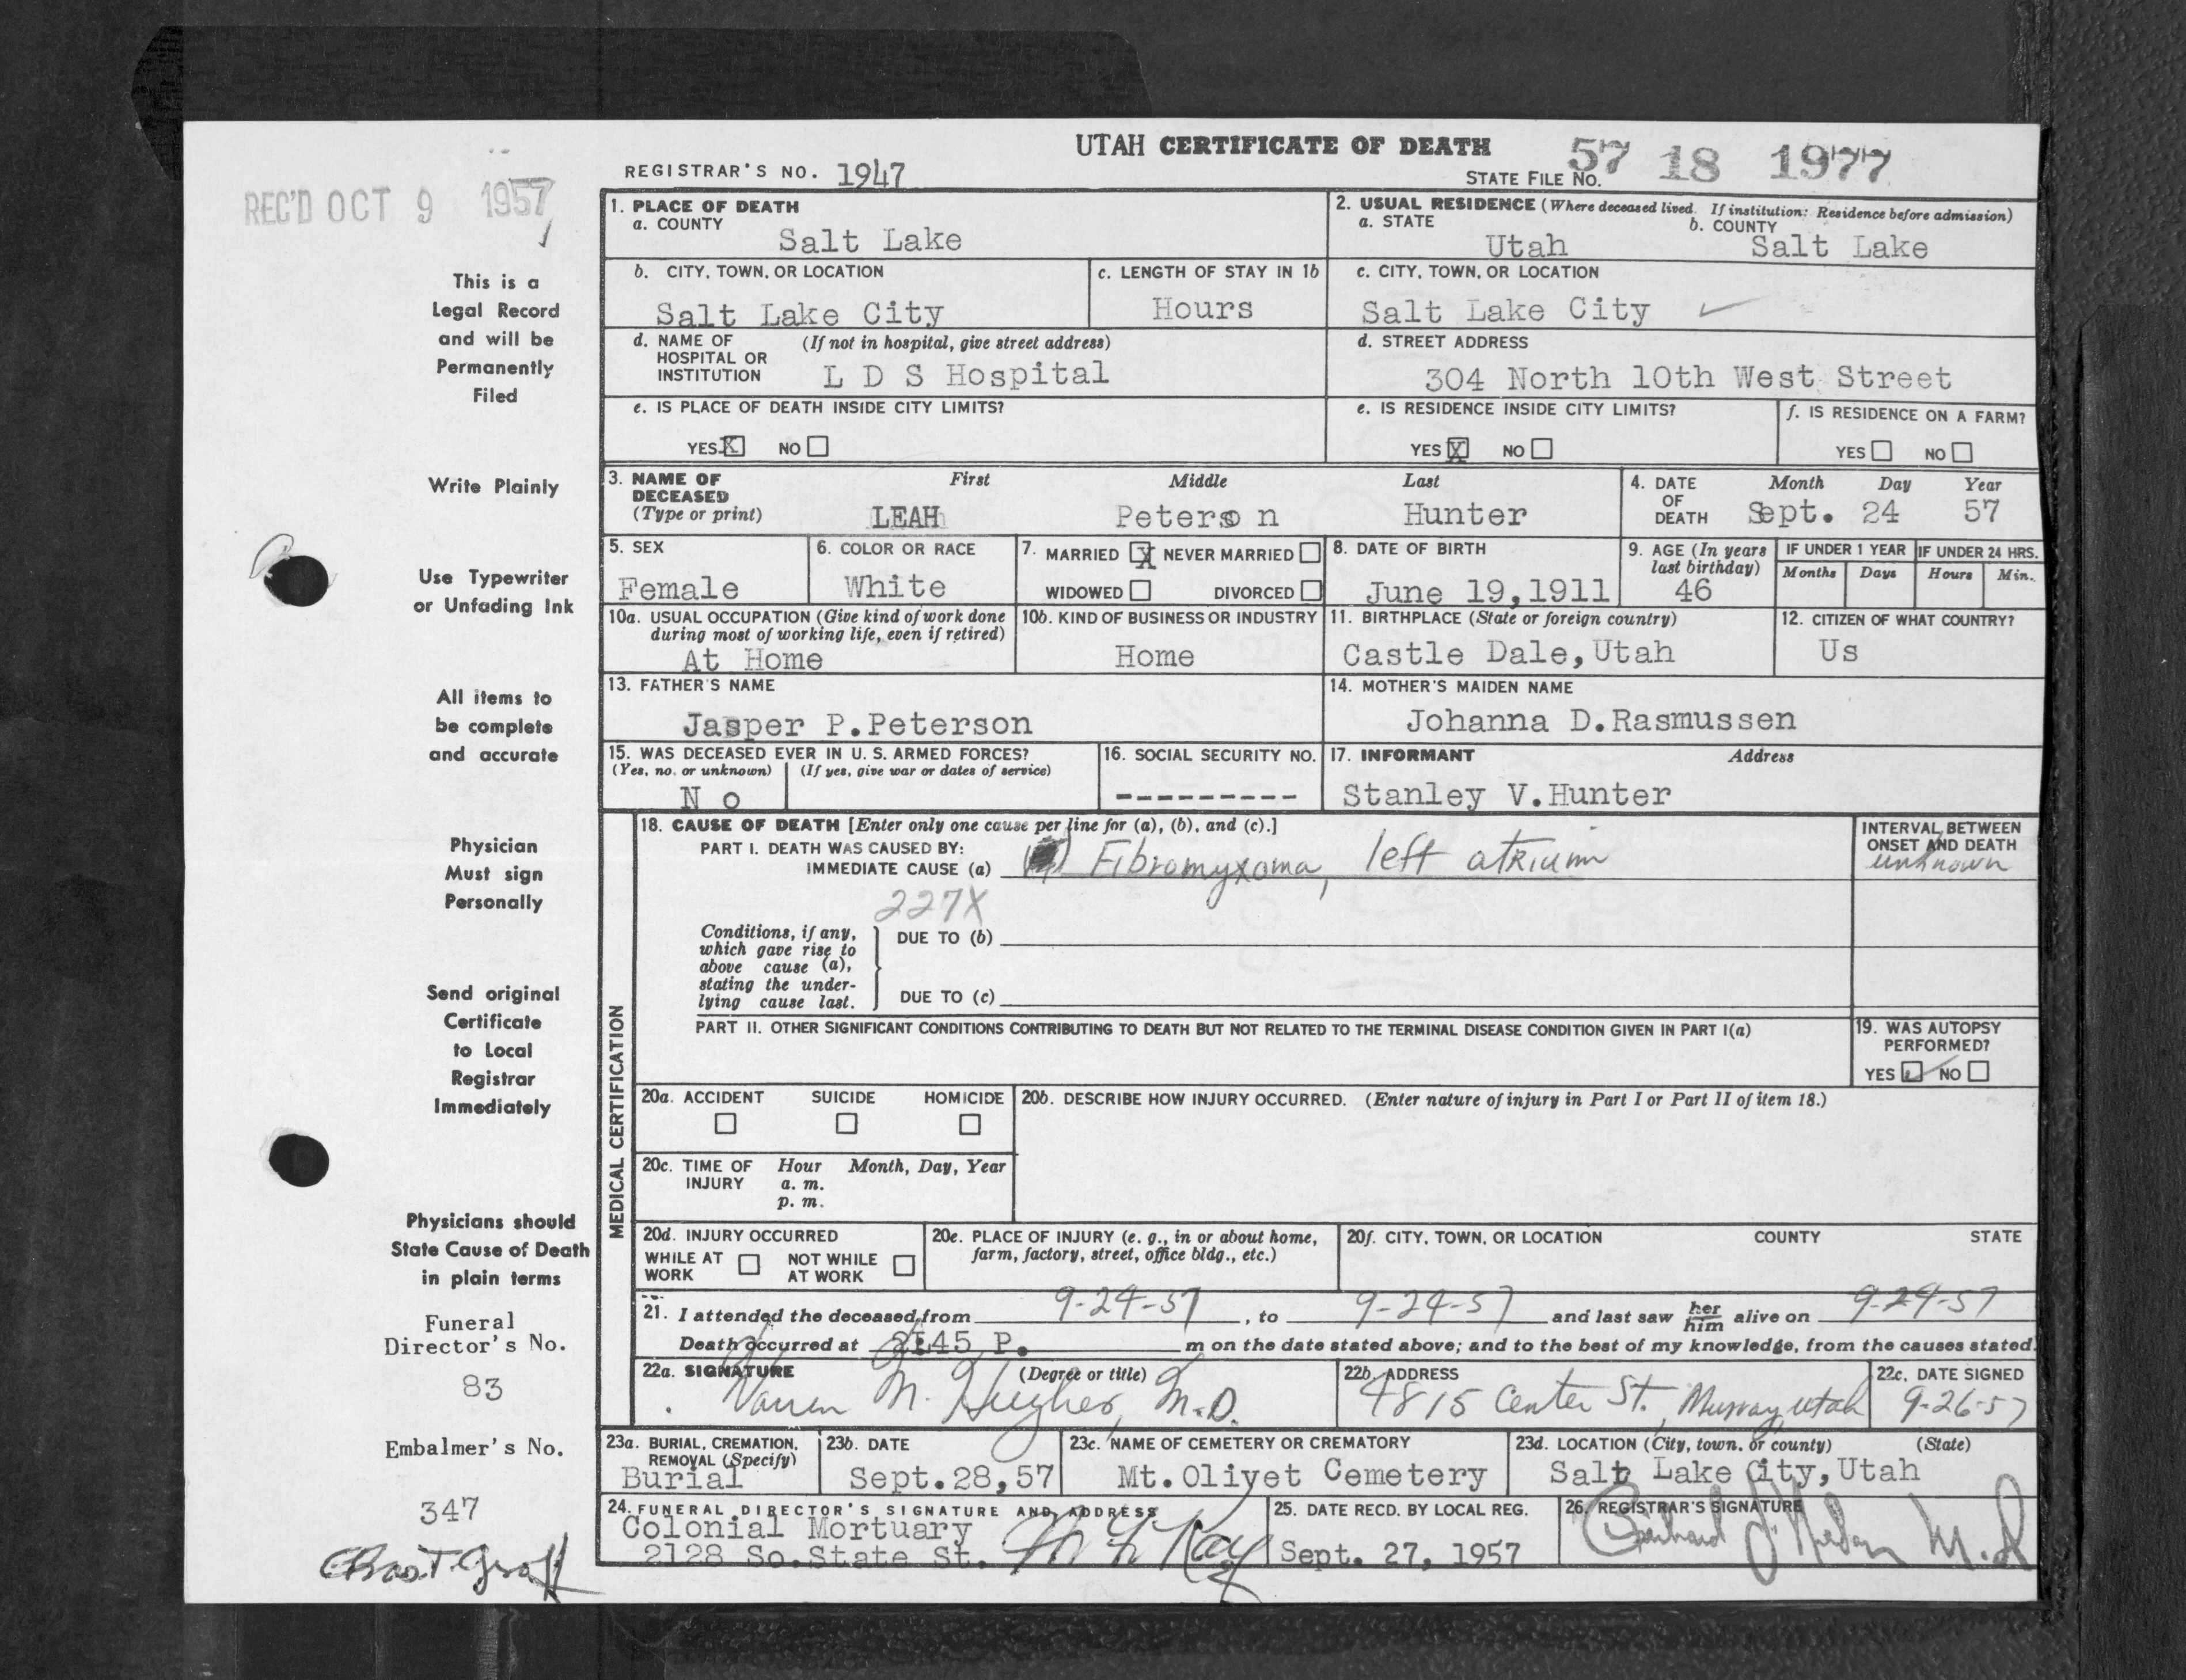 UTAH CERTIFICATE OF DEATH
REGISTRAR'S NO. 1947
STATE FILE NO. 57 18 1977
REC'D OCT 9 1957
1. PLACE OF DEATH
a. COUNTY
Salt Lake
2. USUAL RESIDENCE (Where deceased lived. If institution: Residence before admission)
a. STATE b. COUNTY
Utah Salt Lake
b. CITY, TOWN, OR LOCATION
Salt Lake City
c. LENGTH OF STAY IN 1b
Hours
c. CITY, TOWN, OR LOCATION
Salt Lake City
d. NAME OF HOSPITAL OR INSTITUTION (If not in hospital, give street address)
L D S Hospital
d. STREET ADDRESS
304 North 10th West Street
e. IS PLACE OF DEATH INSIDE CITY LIMITS?
YES X NO
e. IS RESIDENCE INSIDE CITY LIMITS?
YES X NO
f. IS RESIDENCE ON A FARM?
YES NO
3. NAME OF DECEASED (Type or print)
First Middle Last
LEAH Peterson Hunter
4. DATE OF DEATH Month Day Year
Sept. 24 57
5. SEX
Female
6. COLOR OR RACE
White
7. MARRIED X NEVER MARRIED
WIDOWED DIVORCED
8. DATE OF BIRTH
June 19,1911
9. AGE (In years last birthday)
46
IF UNDER 1 YEAR
Months Days
IF UNDER 24 HRS.
Hours Min.
10a. USUAL OCCUPATION (Give kind of work done during most of working life, even if retired)
At Home
10b. KIND OF BUSINESS OR INDUSTRY
Home
11. BIRTHPLACE (State or foreign country)
Castle Dale,Utah
12. CITIZEN OF WHAT COUNTRY?
Us
13. FATHER'S NAME
Jasper P.Peterson
14. MOTHER'S MAIDEN NAME
Johanna D.Rasmussen
15. WAS DECEASED EVER IN U. S. ARMED FORCES?
(Yes, no. or unknown) (If yes, give war or dates of service)
N o
16. SOCIAL SECURITY NO.
---------
17. INFORMANT Address
Stanley V.Hunter
MEDICAL CERTIFICATION
18. CAUSE OF DEATH [Enter only one cause per line for (a), (b), and (c).]
PART I. DEATH WAS CAUSED BY:
IMMEDIATE CAUSE (a) Fibromyxoma, left atrium
INTERVAL BETWEEN ONSET AND DEATH
unknown
227X
Conditions, if any, which gave rise to above cause (a), stating the underlying cause last.
DUE TO (b)
DUE TO (c)
PART II. OTHER SIGNIFICANT CONDITIONS CONTRIBUTING TO DEATH BUT NOT RELATED TO THE TERMINAL DISEASE CONDITION GIVEN IN PART I(a)
19. WAS AUTOPSY PERFORMED?
YES ✓ NO
20a. ACCIDENT SUICIDE HOMICIDE
20b. DESCRIBE HOW INJURY OCCURRED. (Enter nature of injury in Part I or Part II of item 18.)
20c. TIME OF INJURY Hour Month, Day, Year
a. m.
p. m.
20d. INJURY OCCURRED
WHILE AT WORK NOT WHILE AT WORK
20e. PLACE OF INJURY (e. g., in or about home, farm, factory, street, office bldg., etc.)
20f. CITY, TOWN, OR LOCATION COUNTY STATE
21. I attended the deceased from 9-24-57, to 9-24-57 and last saw her him alive on 9-24-57
Death occurred at 2:45 P. m on the date stated above; and to the best of my knowledge, from the causes stated.
22a. SIGNATURE (Degree or title)
Warren N. Hughes, M.D.
22b. ADDRESS
4815 Center St., Murray, Utah
22c. DATE SIGNED
9-26-57
23a. BURIAL, CREMATION, REMOVAL (Specify)
Burial
23b. DATE
Sept.28,57
23c. NAME OF CEMETERY OR CREMATORY
Mt.Olivet Cemetery
23d. LOCATION (City, town, or county) (State)
Salt Lake City,Utah
24. FUNERAL DIRECTOR'S SIGNATURE AND ADDRESS
Colonial Mortuary
2128 So.State St.
25. DATE RECD. BY LOCAL REG.
Sept. 27, 1957
26. REGISTRAR'S SIGNATURE
M.D
This is a
Legal Record
and will be
Permanently
Filed
Write Plainly
Use Typewriter
or Unfading Ink
All items to
be complete
and accurate
Physician
Must sign
Personally
Send original
Certificate
to Local
Registrar
Immediately
Physicians should
State Cause of Death
in plain terms
Funeral
Director's No.
83
Embalmer's No.
347